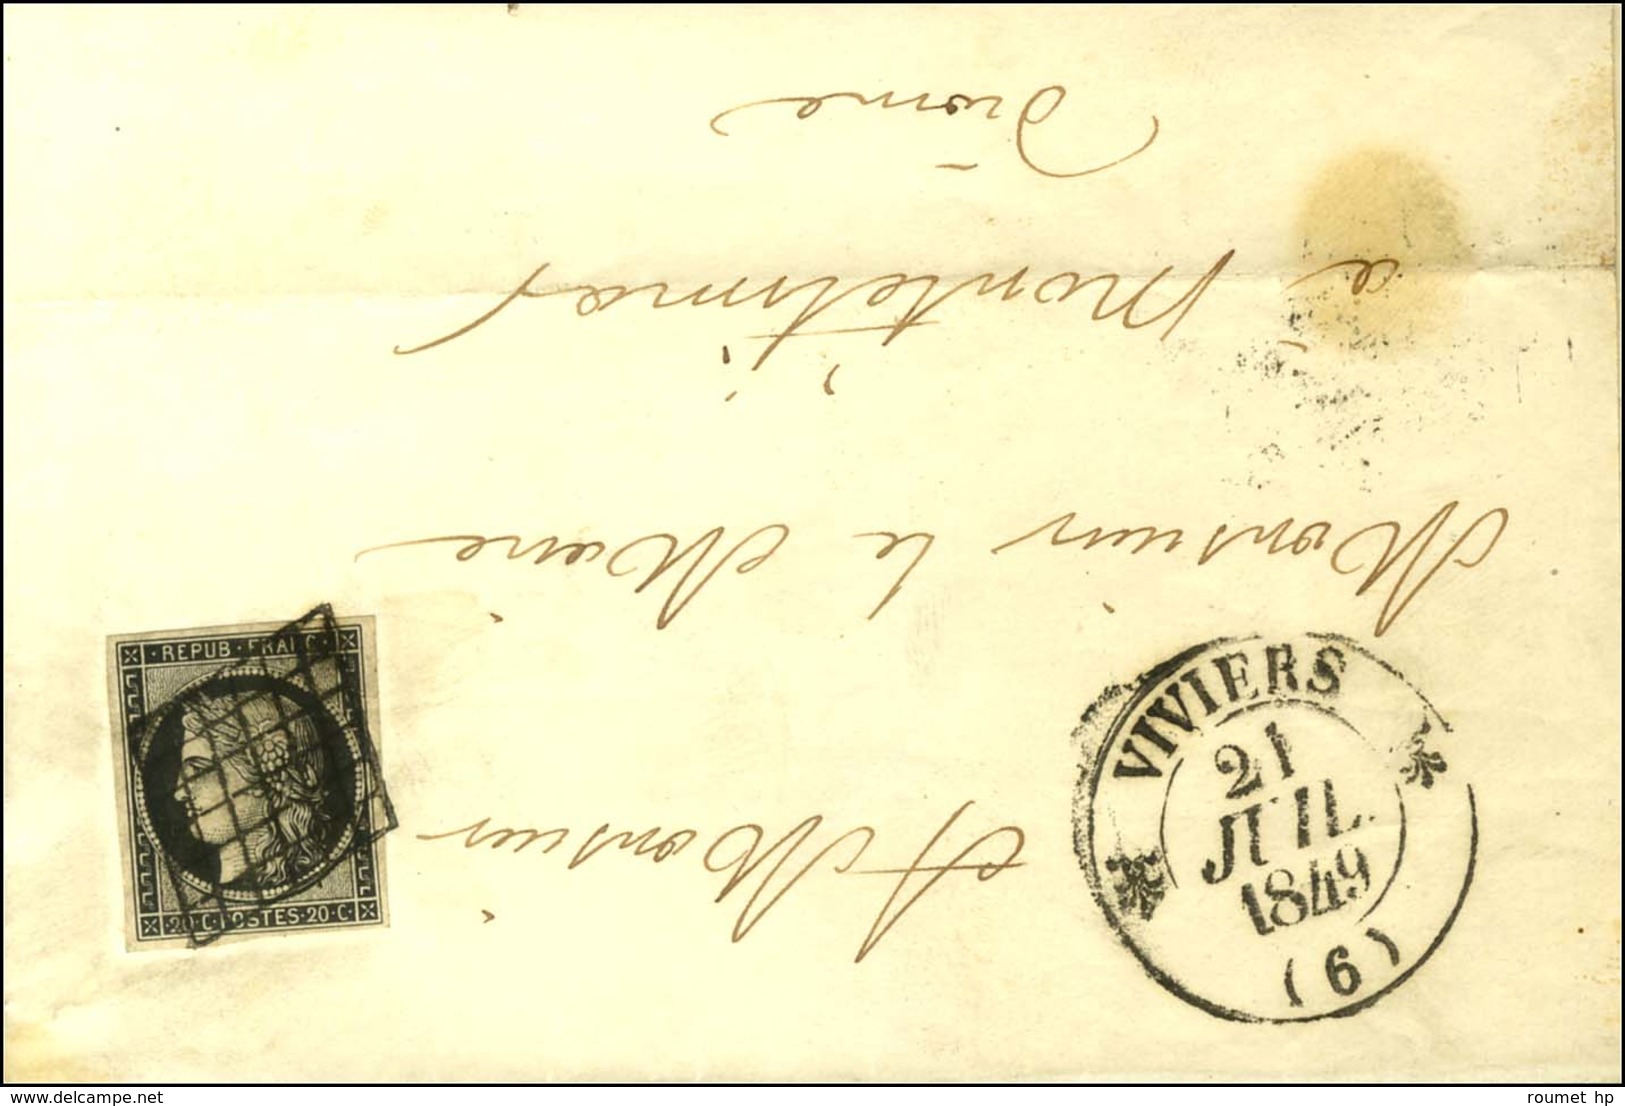 A Monsieur
Monsieur le Maire
à Montélimar
Drôme
REPUB·FRANC·
20·C·POSTES·20·C·
VIVIERS
21
JUIL.
1849
(6)
roumet hp